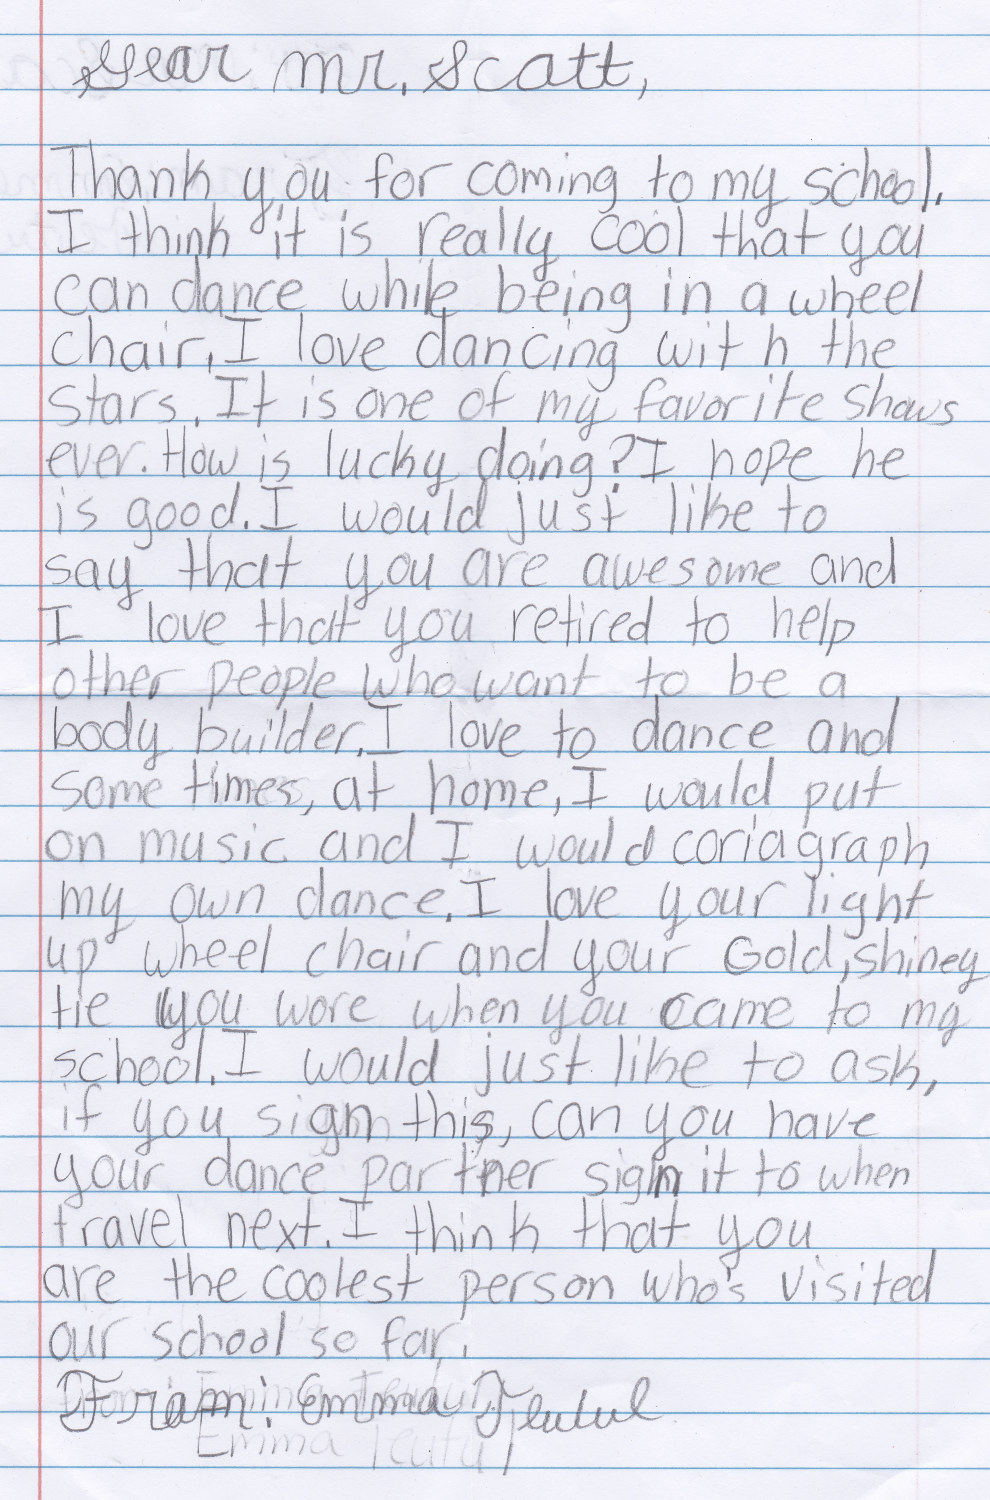 Dear Mr. Scott,
Thank you for coming to my school.
I think it is really cool that you
can dance while being in a wheel
chair. I love dancing with the
stars. It is one of my favorite shows
ever. How is lucky doing? I hope he
is good. I would just like to
say that you are awesome and
I love that you retired to help
other people who want to be a
body builder. I love to dance and
some times, at home, I would put
on music and I would coriagraph
my own dance. I love your light
up wheel chair and your Gold, shiney
tie you wore when you came to my
school. I would just like to ask,
if you sign this, can you have
your dance partner sign it to when
travel next. I think that you
are the coolest person who's visited
our school so far.
From: Emma
Emma